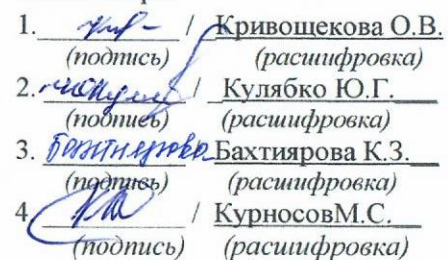 1. / Кривощекова О.В.
(подпись) (расшифровка)
2. / Кулябко Ю.Г.
(подпись) (расшифровка)
3. Бахтиярова Бахтиярова К.З.
(подпись) (расшифровка)
4 / КурносовМ.С.
(подпись) (расшифровка)